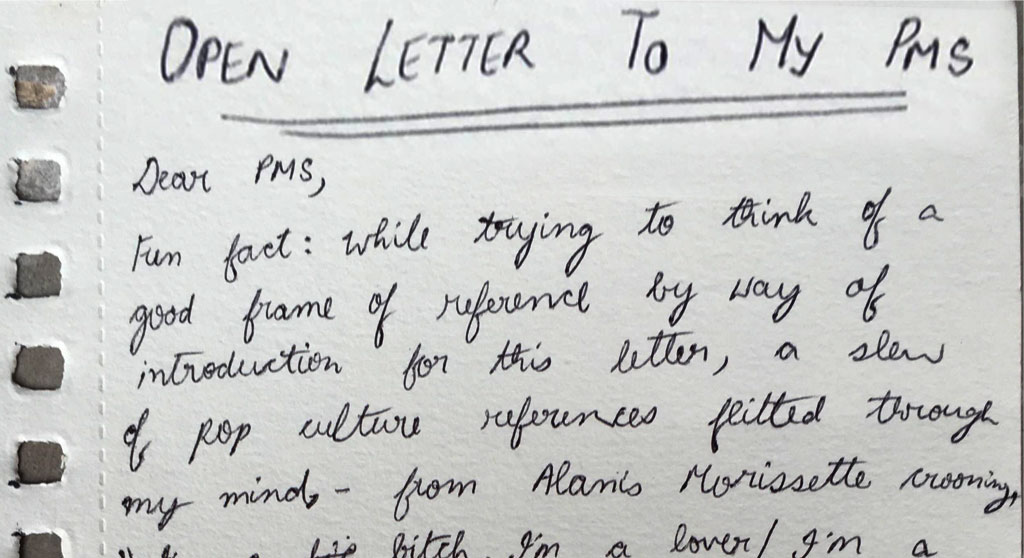 OPEN LETTER TO MY PMS
Dear PMS,
Fun fact: while trying to think of a
good frame of reference by way of
introduction for this letter, a slew
of pop culture references flitted through
my mind - from Alanis Morissette crooning,
bitch, I'm a lover/ I'm a